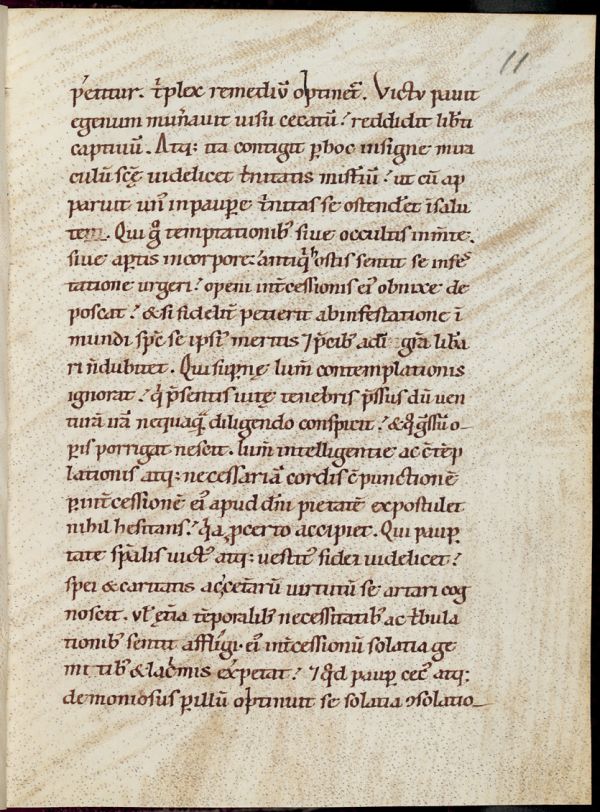 11
p̄erit̄ur. t̄plex remediū optinet̄. Victu pavit
egenum mun̄auit uisu cecatū! reddidit lib̄ti
captiuū. Atq: ita contigit p̄hoc insigne mira
culū scę̄ uidelicet t̄nitatis mist̄iū! ut cū ap
paruit un᷒ inpaupe t̄nitas se ostend̄et īsalu
tem. Qui g̊ temptationib᷒ siue occultis inm̄te.
siue ap̄tis incorpore: antiq̄ hostis sentit se infes
tatione urgeri! opem int̄cessionis ei᷒ obnixe de
poscat! & si fidelit̄ petierit abinfestatione ī
mundi sp̄c se ips᷒ meritis ⁊ p̄cib᷒ adi gr̄a lib̄a
ri n̄dubitet. Qui sup̄nę lum̄ contemplationis
ignorat! q̄ p̄sentis uitę tenebris p̄ssus dū ven
turā uā nequaq̄ diligendo conspicit! & q̊ ḡssū o-
p̄is porrigat nescit. lum̄ intelligentie ac c̄tēp
lationis atq: necessariā cordis c̄punctionē
p̄ int̄cessionē ei᷒ apud dn̄i pietatē expostulet
nihil hesitans! q̄a p̄certo accipiet. Qui paup̄
tate sp̄alis vict᷒ atq: uestit᷒ fidei uidelicet!
spei & caritatis ac cet̄arū virtutū se artari cog
noscit. vl̄ etiā tēporalib᷒ necessitatib᷒ ac t̄bula
tionib᷒ sentit affligi. ei᷒ int̄cessionū solatia ge
mitib᷒ & lac̄mis expetat! ⁊ q̊d paup̄ cec᷒ atq:
demoniosus p̄ illū optinuit se solatia ꝯsolatio-